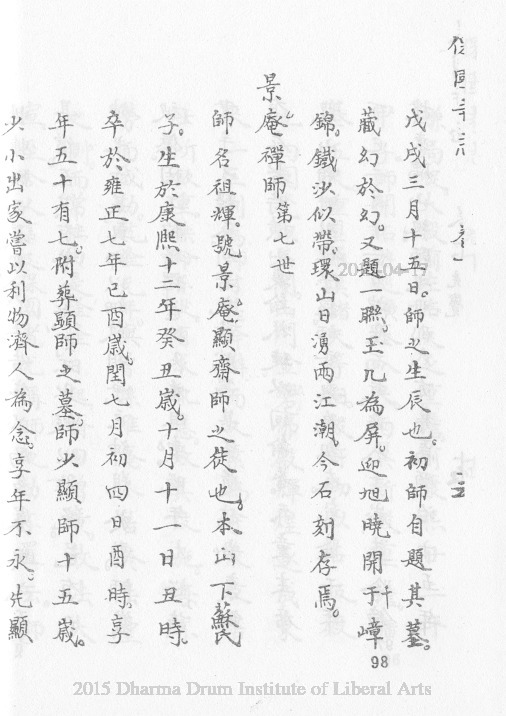 卷一
戊戌三月十五日。師之生辰也。初師自題其墓。
藏幻於幻。又題一聯。王几為屏。迎旭曉開千嶂
錦。鐵沙似帶。環山日湧兩江潮。今石刻存焉。
景庵禪師第七世
師名祖輝。號景庵。顯齋師之徒也。本山下蘇氏
子。生於康熙十二年癸丑歲。十月十一日丑時。
卒於雍正七年己酉歲。閏七月初四日酉時。享
年五十有七。附葬顯師之墓。師少顯師十五歲。
少小出家嘗以利物濟人為念。享年不永。先顯
98
2015 Dharma Drum Institute of Liberal Arts